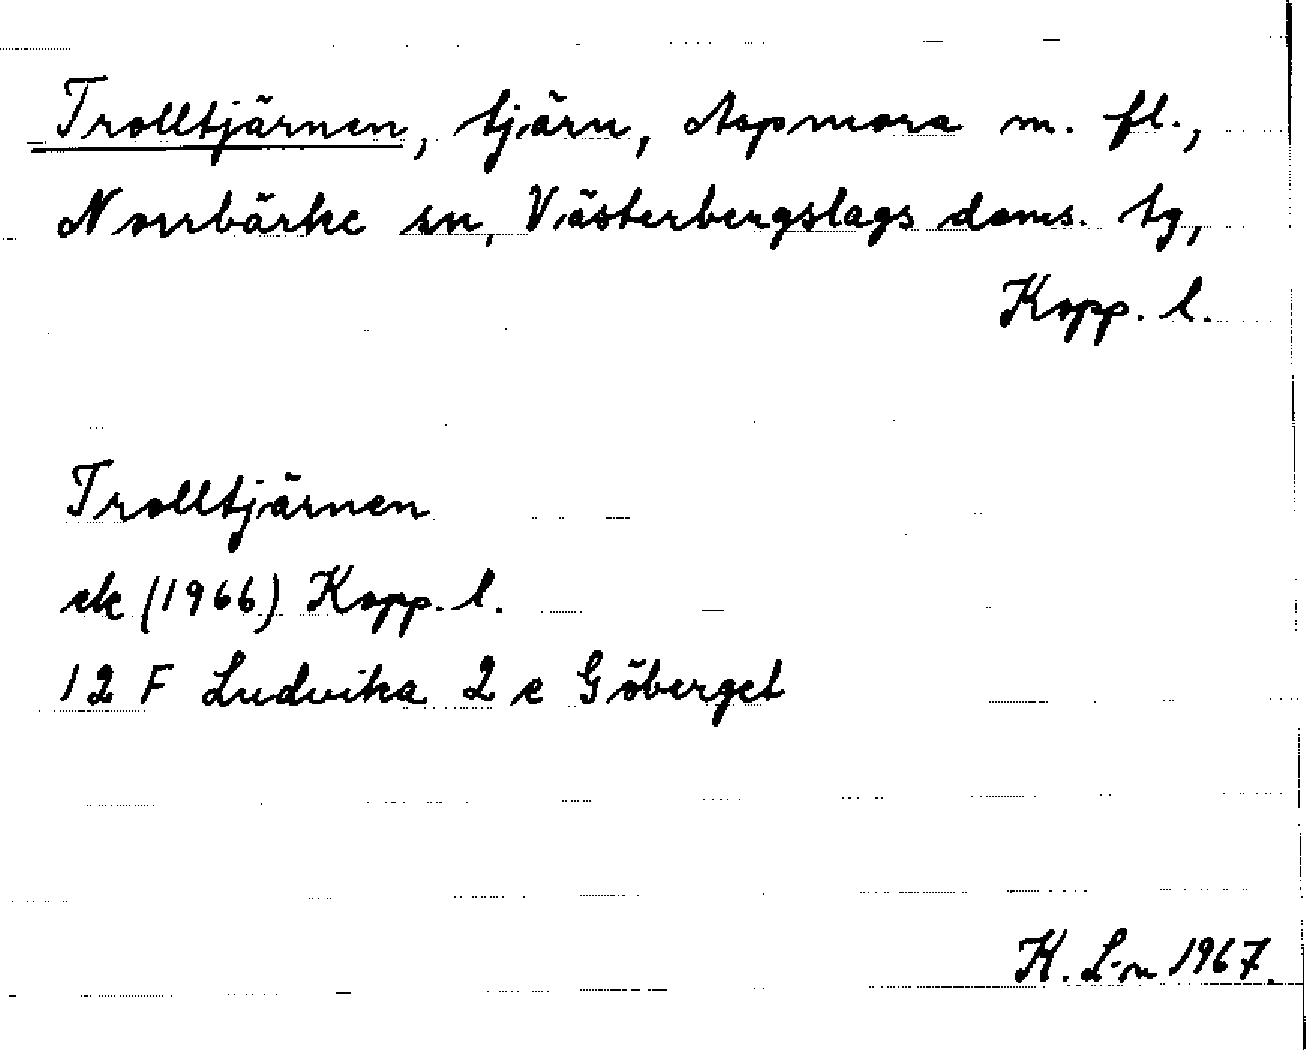 Trolltjärnen, tjärn, Aspmora m. fl.,
Norrbärke sn, Västerbergslags doms. tg,
Kopp. l.
Trolltjärnen
ek (1966) Kopp. l.
12 F Ludvika 2 e Göberget
K. L-m 1967.